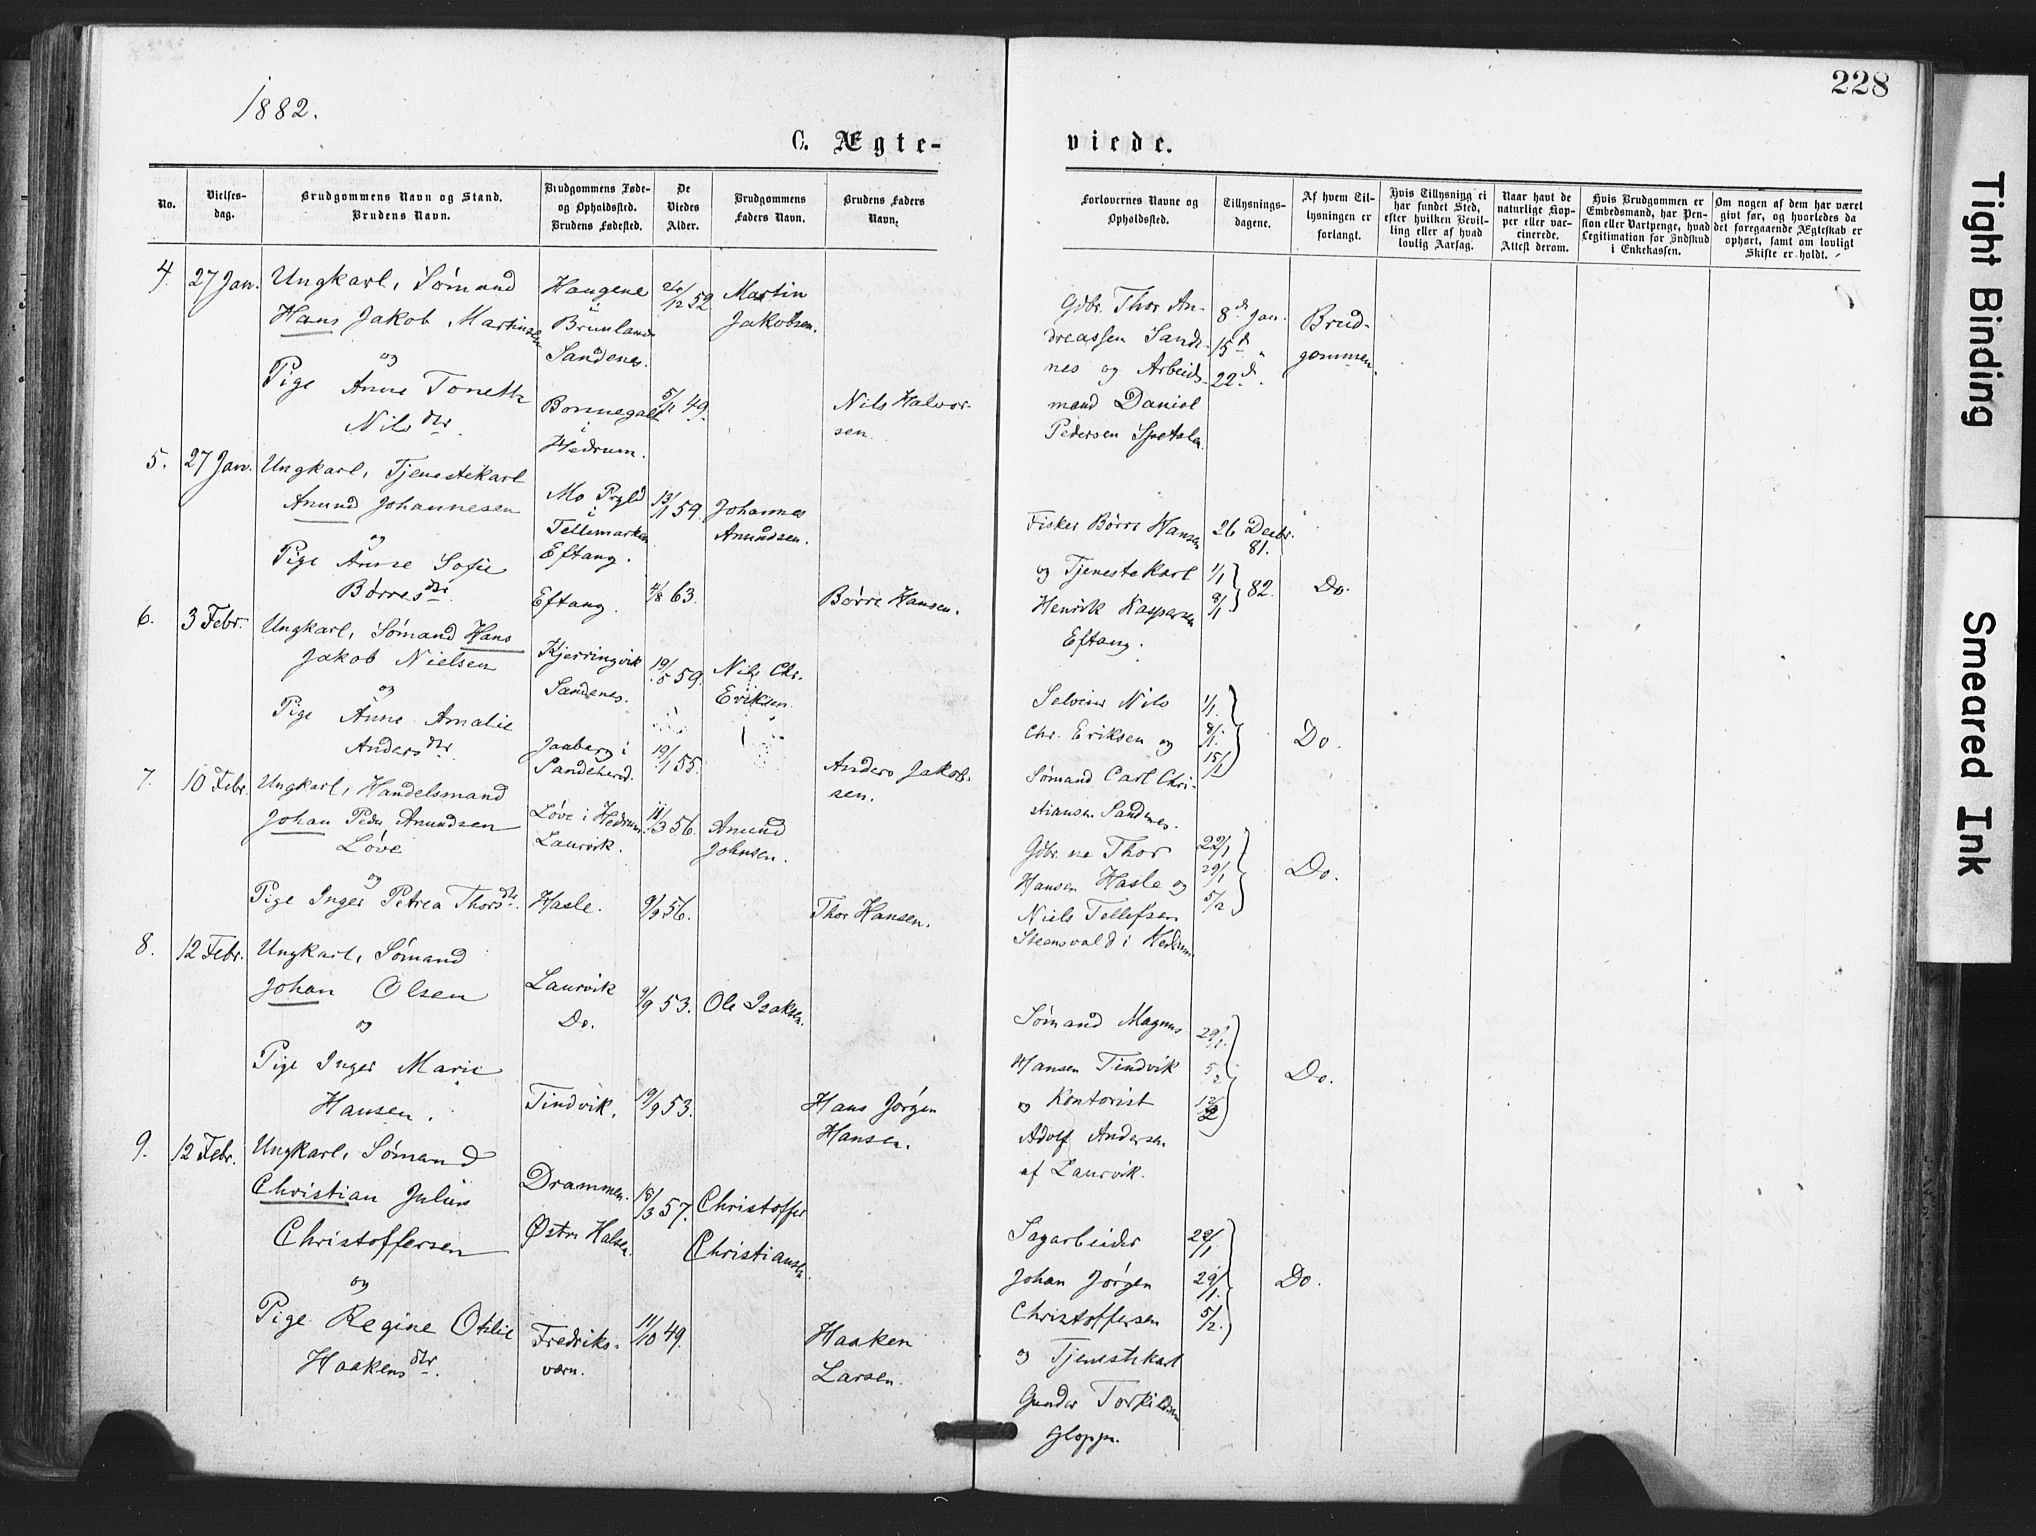 228
1882.
C. Ægte-
viede.
No.
Vielses-
dag.
Brudgommens Navn og Stand.
Brudens Navn.
Brudgommens Føde-
og Opholdssted.
Brudens Fødested.
De
Viedes
Alder.
Brudgommens
Faders Navn.
Brudens Faders
Navn.
Forlovernes Navne og
Opholdssted.
Tillysnings-
dagene.
Af hvem Til-
lysningen er
forlangt.
Hvis Tillysning ei
har fundet Sted,
efter hvilken Bevil-
ling eller af hvad
lovlig Aarsag.
Naar havt de
naturlige Kop-
per eller vac-
cinerede.
Attest derom.
Hvis Brudgommen er
Embedsmand, har Pen-
sion eller Vartpenge, hvad
Legitimation for Indskud
i Enkekassen.
Om nogen af dem har været
givt før, og hvorledes da
det foregaaende Ægteskab er
ophørt, samt om lovligt
Skifte er holdt.
4.
27 Jan.
Ungkarl, Sømand
Hans Jakob Martinsen
og
Pige Anne Toneth
Nilsdtr.
Haugene
i
Brunlanes
Sandenes.
Bommegalt
i
Hedrum.
/12 52
5/11 49.
Martin
Jakobsen.
Nils Halvor-
sen.
Gdbr. Thor An-
dreassen Sande-
nes og Arbeids-
mand Daniel
Pedersen Spetalen
8de Jan.
15de "
22de "
Brud-
gommen.
5.
27 Jan.
Ungkarl, Tjenestekarl
Anund Johannesen
og
Pige Anne Sofie
Børresdtr.
Mo Prgld
i
Tellemarken
Eftang.
Eftang.
13/11 59.
11/8 63.
Johannes
Anundsen.
Børre Hansen.
Fisker Børre Hansen
og Tjenestekarl
Henrik Kaspersen
Eftang.
26 Decbr.
81.
1/1
8/1 } 82.
Do.
6.
3 Febr.
Ungkarl, Sømand Hans
Jakob Nielsen
og
Pige Anne Amalie
Andersdtr.
Kjerringvik
Sandenes.
Jaaberg i
Sandeherd.
19/5 59.
19/1 55.
Nils Chr.
Eriksen.
Anders Jakob-
sen.
Selveier Nils
Chr. Eriksen og
Sømand Carl Chri-
stiansen Sandenes.
1/1.
8/1.
15/1
Do.
7.
10 Febr.
Ungkarl, Handelsmand
Johan Peder Anundsen
Løve
og
Pige Inger Petrea Thorsdtr.
Løve i Hedrum
Laurvik.
Hasle.
11/3 56.
9/9 56.
Anund
Johnsen.
Thor Hansen.
Gdbr.ne Thor
Hansen Hasle og
Niels Tellefsen
Steensvald i Hedrum
22/1
29/1
5/2
Do.
8.
12 Febr.
Ungkarl, Sømand
Johan Olsen
og
Pige Inger Marie
Hansen.
Laurvik
Do.
Tindvik.
9/9 53.
19/9 53.
Ole Isaksen.
Hans Jørgen
Hansen.
Sømand Magnus
Hansen Tindvik
og Kontorist
Adolf Andersen
af Laurvik.
29/1.
5/2
12/2
Do.
9.
12 Febr.
Ungkarl, Sømand
Christian Julius
Christoffersen
og
Pige Regine Othlie
Haakensdtr.
Drammen.
Østre Halsen.
Fredriks-
værn.
18/3 57.
11/10 49.
Christoffer
Christiansen.
Haaken
Larsen.
Sagarbeider
Johan Jørgen
Christoffersen
og Tjenestekarl
Gunder Torkildsen
Gloppe.
22/1
29/1.
5/2.
Do.
Tight Binding
Smeared Ink